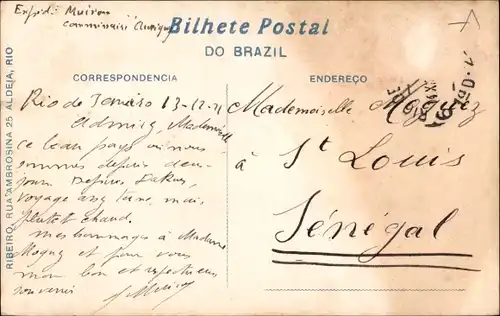 Expéd: Muiron
Commissaire
Bilhete Postal
DO BRAZIL
CORRESPONDENCIA
ENDEREÇO
RIBEIRO, RUA AMBROSINA 25 ALDEIA, RIO
Rio de Janeiro 13-12-
Mademoiselle
ce beau pays où nous
sommes depuis deux
jours Depuis Dakar,
voyage sans mais
plutôt chaud.
mes hommages à Madame
et pour vous
mon bon et
souvenir
Mademoiselle
à St Louis
Sénégal